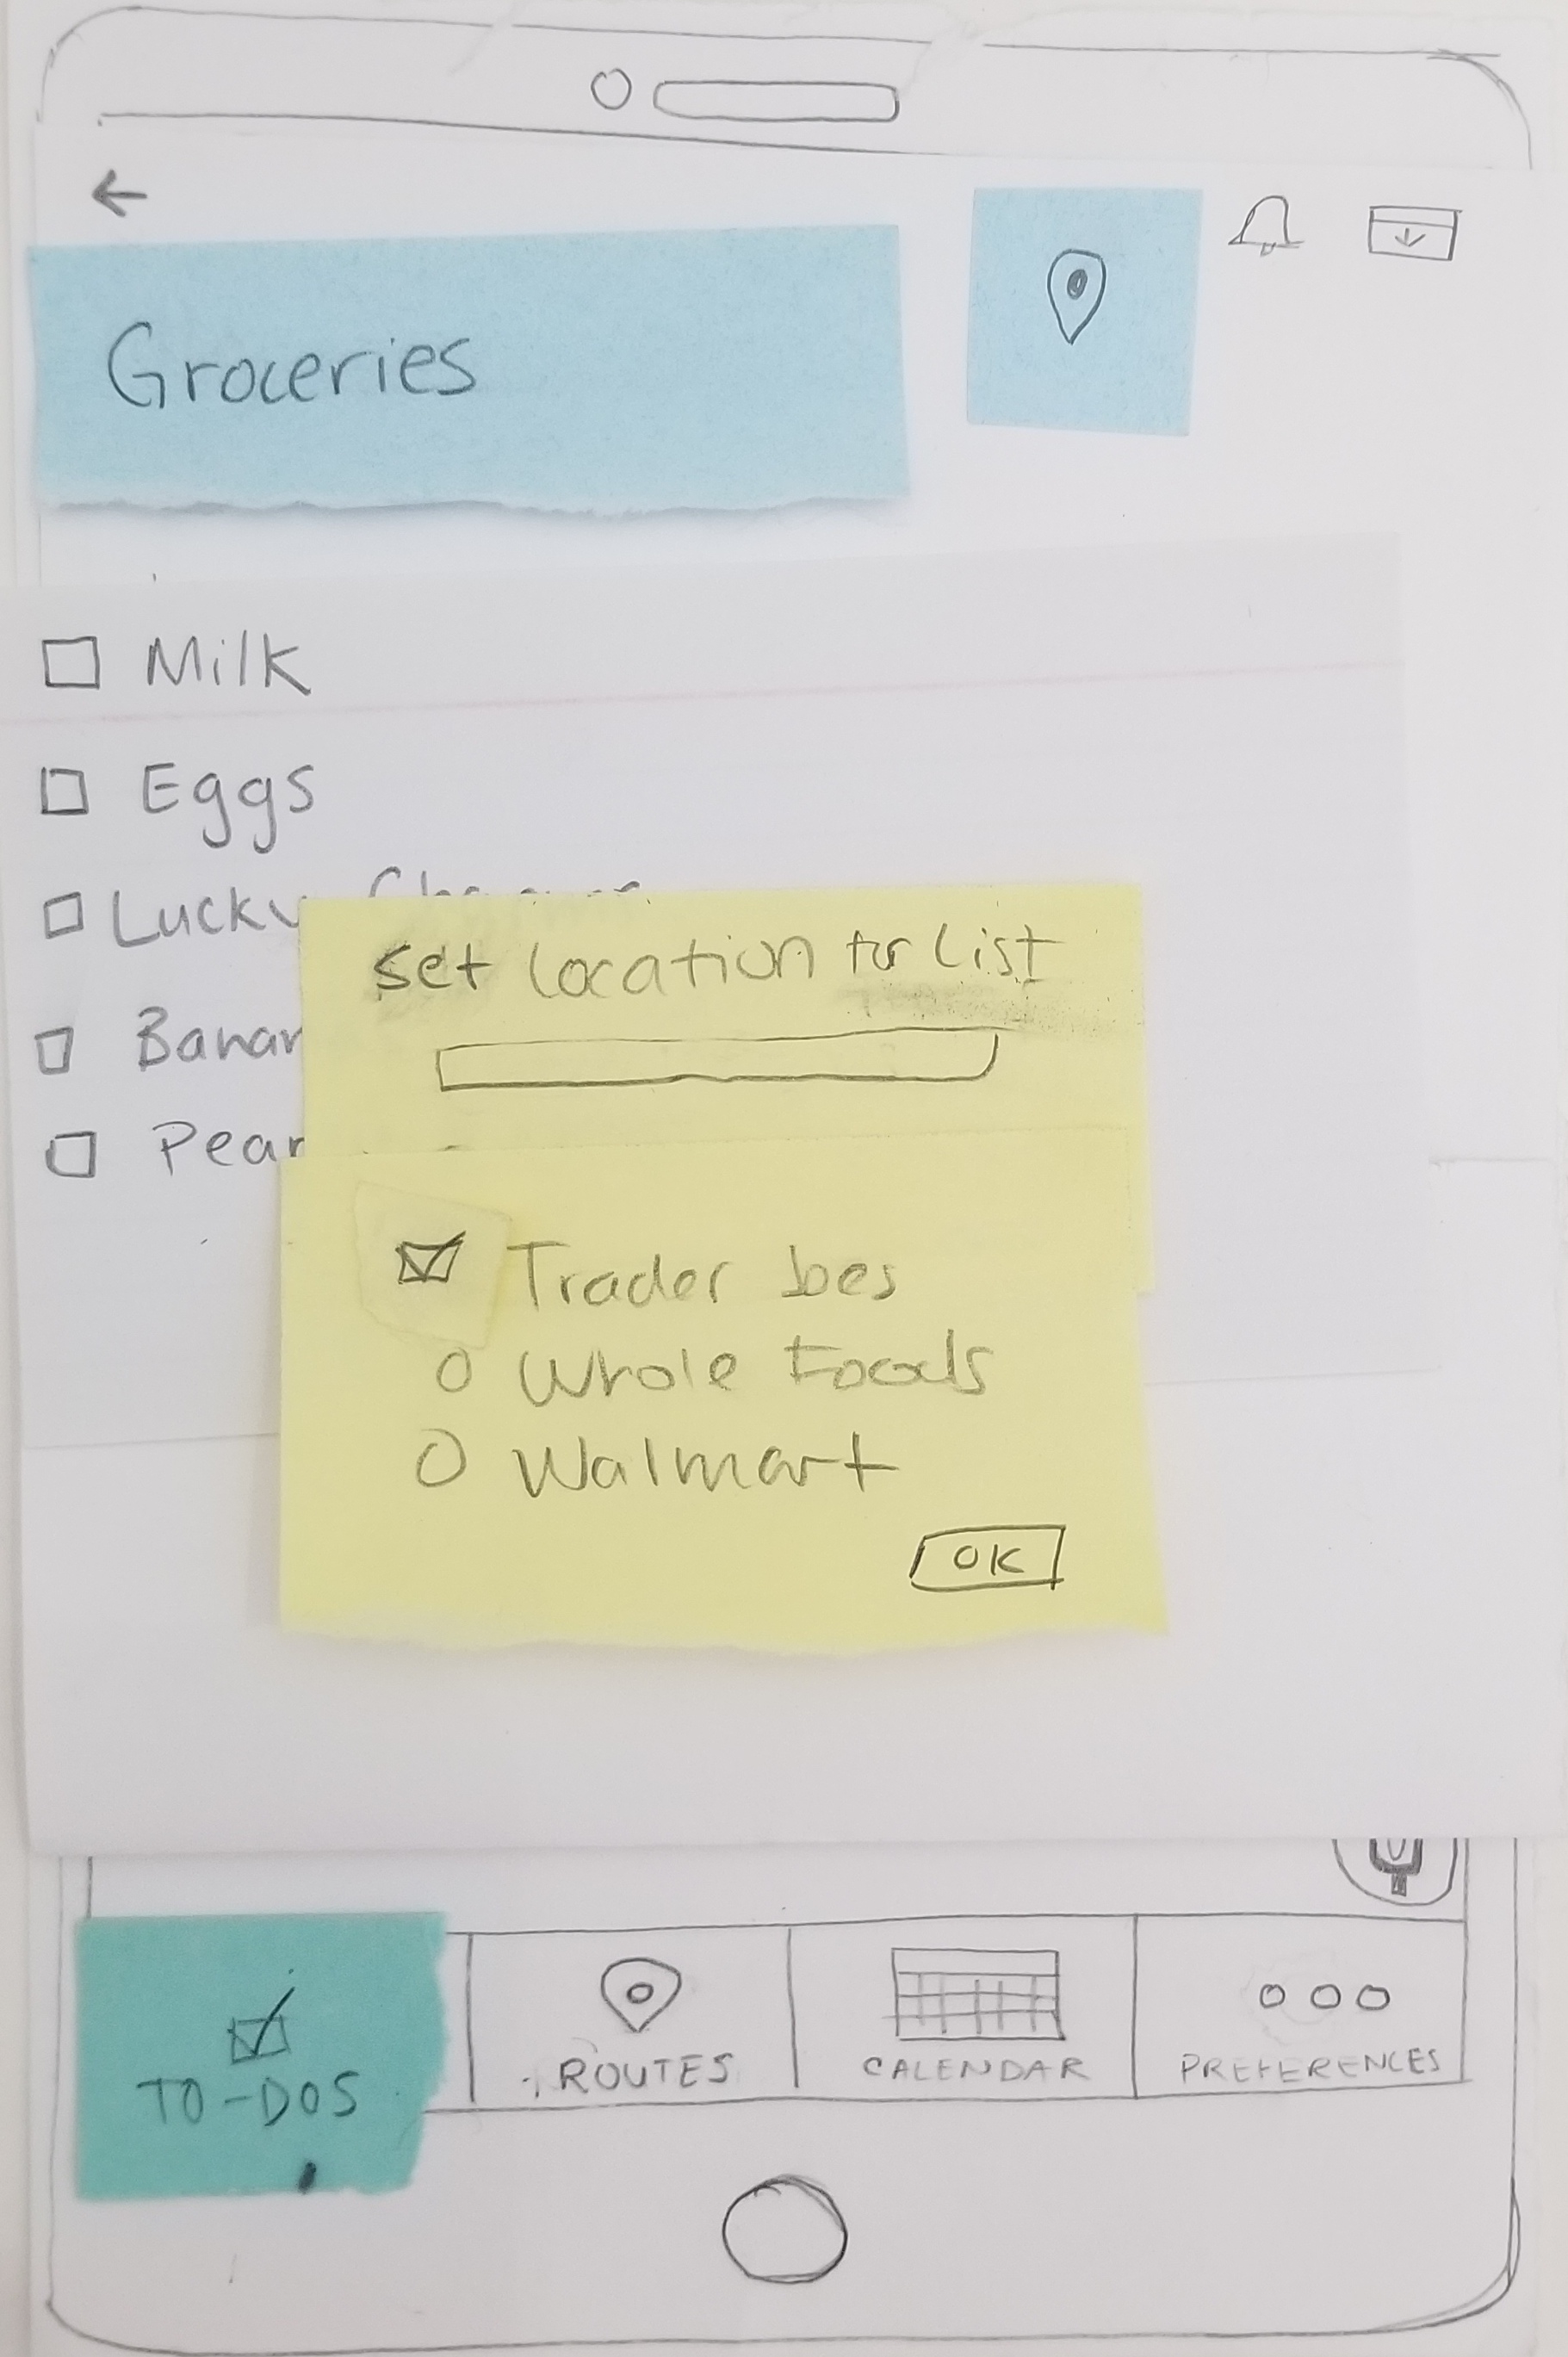 Groceries
Milk
Eggs
Lucky
Banan
Pear
Set location for list
Trader Joes
Whole Foods
Walmart
OK
TO-DOS
ROUTES
CALENDAR
PREFERENCES